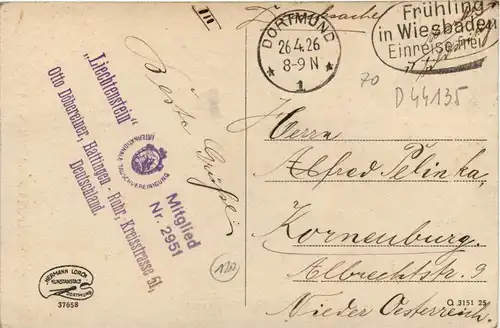 III
Drucksache
DORTMUND
26.4.26
8-9 N
1
Frühling
in Wiesbaden
Einreise frei
70
D44135
"Liechtenstein"
INTERNATIONALE TAUSCHVEREINIGUNG
Mitglied
Nr. 2951
Otto Döbereiner, Hattingen-Ruhr, Kreisstrasse 51,
Deutschland.
Beste Grüße
120
Herrn
Alfred Pelinka,
Korneuburg.
Albrechtstr. 9
Nieder Oesterreich.
HERMANN LORCH
KUNSTANSTALT
DORTMUND
37658
Q 3151 25